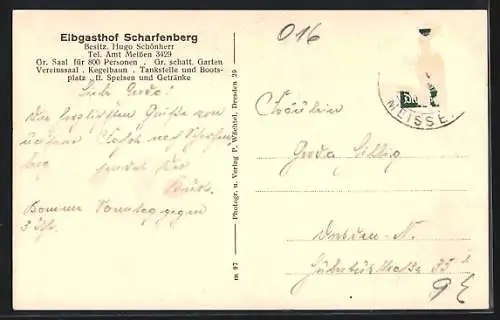 Elbgasthof Scharfenberg
Besitz. Hugo Schönherr
Tel. Amt Meißen 3429
Gr. Saal für 800 Personen . Gr. schatt. Garten
Vereinssaal . Kegelbahn . Tankstelle und Boots-
platz . ff. Speisen und Getränke
Liebe Gerda!
Die herzlichsten Grüße von
unserer
berg sendet Dir
Komme Sonntag gegen
3 Uhr.
m 97
Photogr. u. Verlag P. Wächtel, Dresden 29
016
MEISSE
Fräulein
Gerda
Dresden-N.